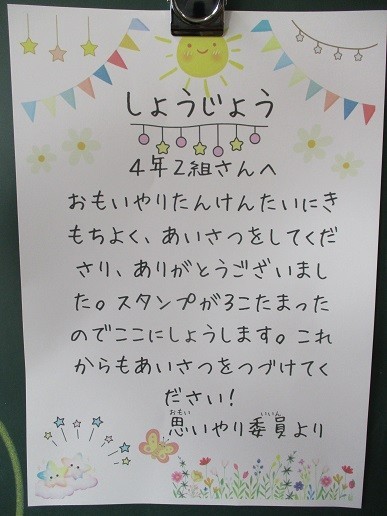 しょうじょう
4年2組さんへ
おもいやりたんけんたいにき
もちよく、あいさつをしてくだ
さり、ありがとうございまし
た。スタンプが3こたまった
のでここにしょうします。これ
からもあいさつをつづけてく
ださい!
思いやり委員より
おもい いいん